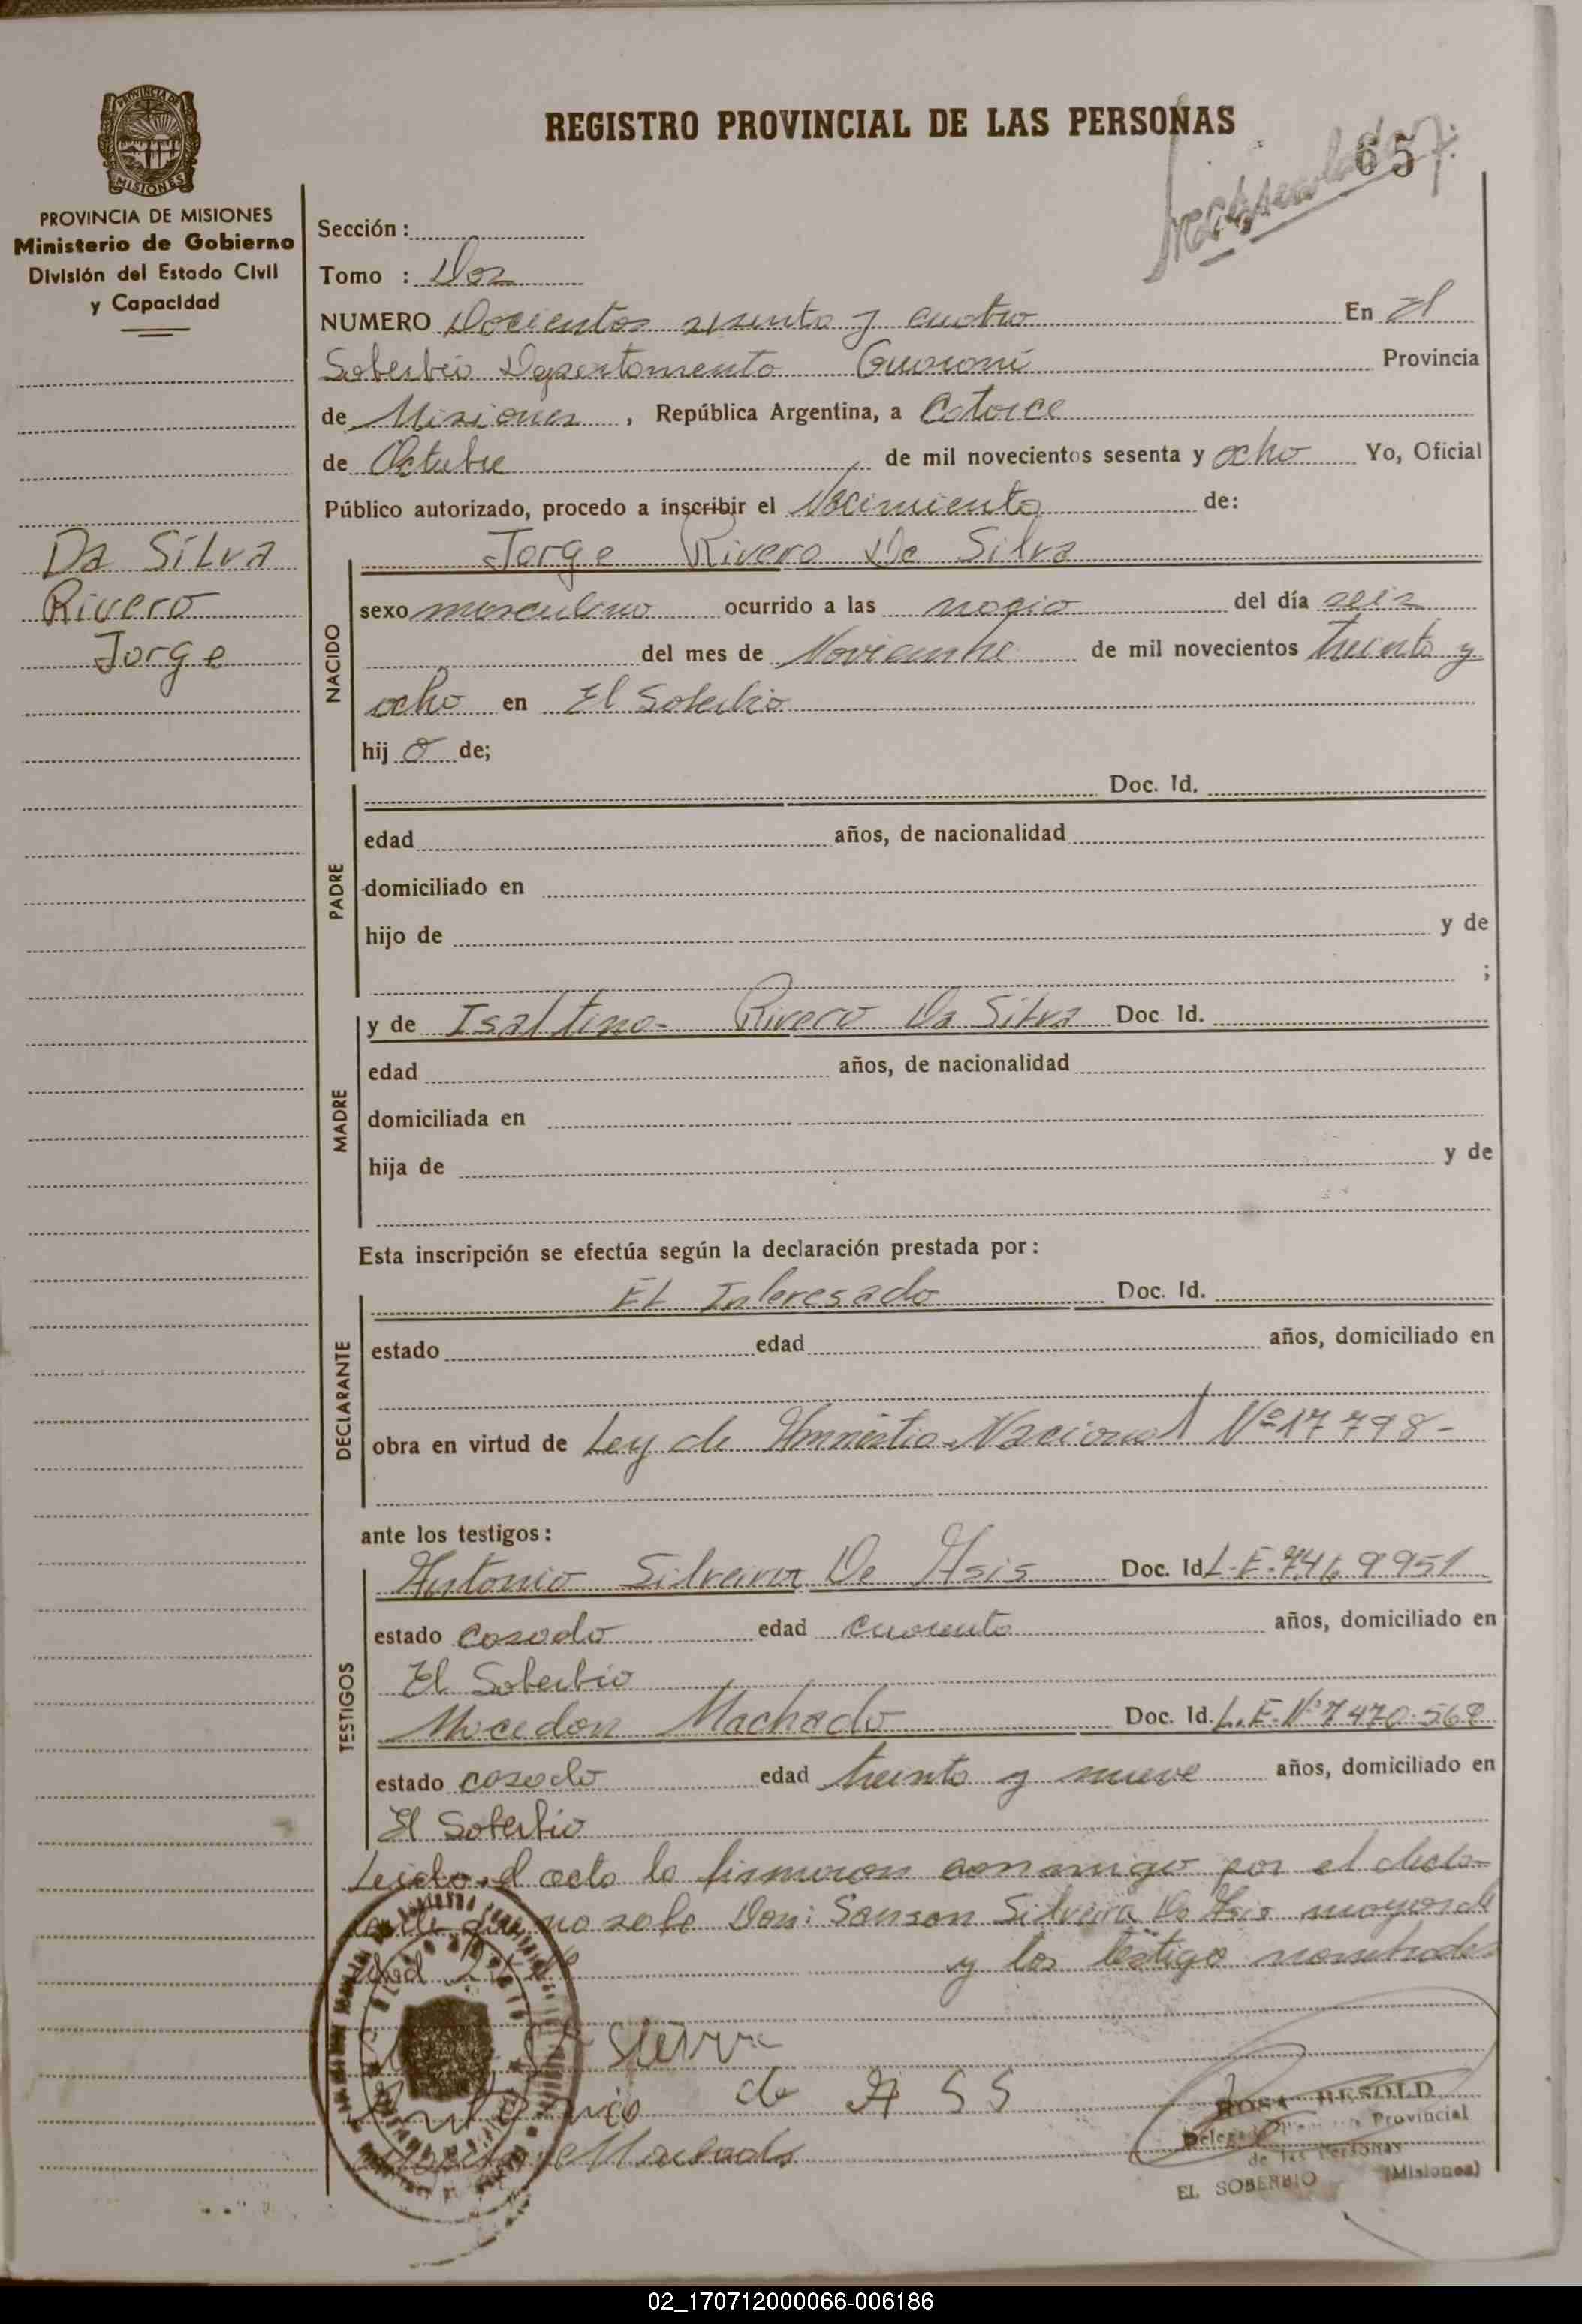 REGISTRO PROVINCIAL DE LAS PERSONAS
657
PROVINCIA DE
MISIONES
PROVINCIA DE MISIONES
Ministerio de Gobierno
División del Estado Civil
y Capacidad
Da Silva
Rivero
Jorge
Sección :
Tomo : Dos
NUMERO Docientos sesenta y cuatro En El
Soberbio Departamento Guaraní Provincia
de Misiones , República Argentina, a Catorce
de Octubre de mil novecientos sesenta y ocho Yo, Oficial
Público autorizado, procedo a inscribir el Nacimiento de:
Jorge Rivero Da Silva
NACIDO
sexo masculino ocurrido a las del día seis
del mes de Noviembre de mil novecientos treinta y
ocho en El Soberbio
hij o de;
PADRE
Doc. Id.
edad años, de nacionalidad
domiciliado en
hijo de y de
;
MADRE
y de Isaltina Rivero Da Silva Doc Id.
edad años, de nacionalidad
domiciliada en
hija de y de
Esta inscripción se efectúa según la declaración prestada por :
DECLARANTE
El Interesado Doc. Id.
estado edad años, domiciliado en
obra en virtud de Ley de Amnistia Nacional Nº 17798-
ante los testigos :
TESTIGOS
Antonio Silveira De Asis Doc. Id L.E. 7.469951
estado casado edad cuarenta años, domiciliado en
El Soberbio
Machado Doc. Id. L.E. Nº 7470.568
estado casado edad treinta y nueve años, domiciliado en
El Soberbio
Leido el acta la firmaron conmigo por el decla-
no sabe Don: Sanson Silveira De Asis mayor de
edad y los testigo nombrados
Antonio de ASS
Machado
ROSA BESOLD
Provincial
de las Personas
EL SOBERBIO (Misiones)
02_170712000066-006186